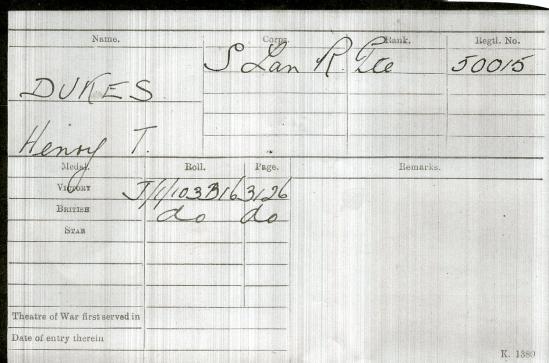 Name. Corps. Rank. Regtl. No.
S Lan R. Pte 50015
DUKES
Henry T.
Medal. Roll. Page. Remarks.
VICTORY J/1/103B16 3126
BRITISH do do
STAR
Theatre of War first served in
Date of entry therein
K. 1380